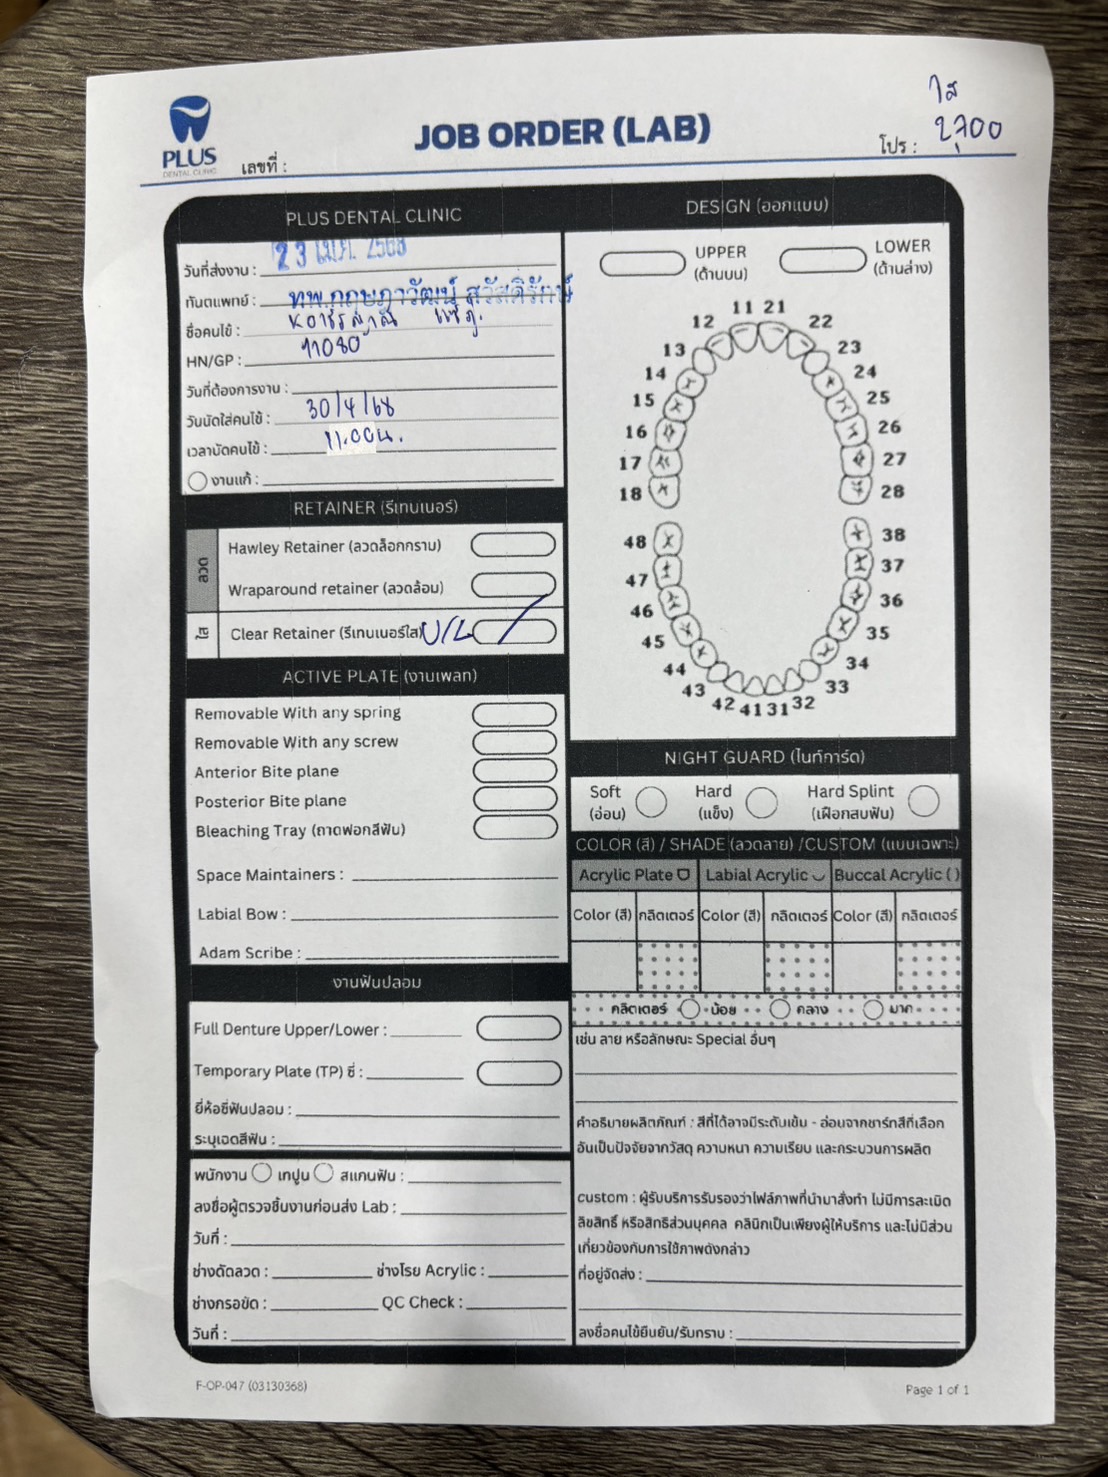 PLUS
DENTAL CLINIC
เลขที่ :
JOB ORDER (LAB)
ใส
โปร : 2,700
PLUS DENTAL CLINIC
วันที่ส่งงาน : 23 เม.ย. 2568
ทันตแพทย์ : ทพ.กฤษฎาวัฒน์ สวัสดิรักษ์
ชื่อคนไข้ :
HN/GP : 11080
วันที่ต้องการงาน :
วันนัดใส่คนไข้ : 30/4/68
เวลานัดคนไข้ : 11.00น.
งานแก้ :
RETAINER (รีเทนเนอร์)
ลวด
Hawley Retainer (ลวดล็อกกราม)
Wraparound retainer (ลวดล้อม)
ใส
Clear Retainer (รีเทนเนอร์ใส) U/L
ACTIVE PLATE (งานเพลท)
Removable With any spring
Removable With any screw
Anterior Bite plane
Posterior Bite plane
Bleaching Tray (ถาดฟอกสีฟัน)
Space Maintainers :
Labial Bow :
Adam Scribe :
งานฟันปลอม
Full Denture Upper/Lower :
Temporary Plate (TP) ซี่ :
ยี่ห้อซี่ฟันปลอม :
ระบุเฉดสีฟัน :
พนักงาน เทปูน สแกนฟัน :
ลงชื่อผู้ตรวจชิ้นงานก่อนส่ง Lab :
วันที่ :
ช่างดัดลวด : ช่างโรย Acrylic :
ช่างกรอขัด : QC Check :
วันที่ :
DESIGN (ออกแบบ)
UPPER
(ด้านบน)
LOWER
(ด้านล่าง)
11 21
12 22
13 23
14 24
15 25
16 26
17 27
18 28
48 38
47 37
46 36
45 35
44 34
43 33
42 41 31 32
NIGHT GUARD (ไนท์การ์ด)
Soft
(อ่อน)
Hard
(แข็ง)
Hard Splint
(เฝือกสบฟัน)
COLOR (สี) / SHADE (ลวดลาย) /CUSTOM (แบบเฉพาะ)
Acrylic Plate Labial Acrylic Buccal Acrylic ( )
Color (สี) กลิตเตอร์ Color (สี) กลิตเตอร์ Color (สี) กลิตเตอร์
กลิตเตอร์ น้อย กลาง มาก
เช่น ลาย หรือลักษณะ Special อื่นๆ
คำอธิบายผลิตภัณฑ์ : สีที่ได้อาจมีระดับเข้ม - อ่อนจากชาร์ทสีที่เลือก
อันเป็นปัจจัยจากวัสดุ ความหนา ความเรียบ และกระบวนการผลิต
custom : ผู้รับบริการรับรองว่าไฟล์ภาพที่นำมาสั่งทำ ไม่มีการละเมิด
ลิขสิทธิ์ หรือสิทธิส่วนบุคคล คลินิกเป็นเพียงผู้ให้บริการ และไม่มีส่วน
เกี่ยวข้องกับการใช้ภาพดังกล่าว
ที่อยู่จัดส่ง :
ลงชื่อคนไข้ยืนยัน/รับทราบ :
F-OP-047 (03130368)
Page 1 of 1